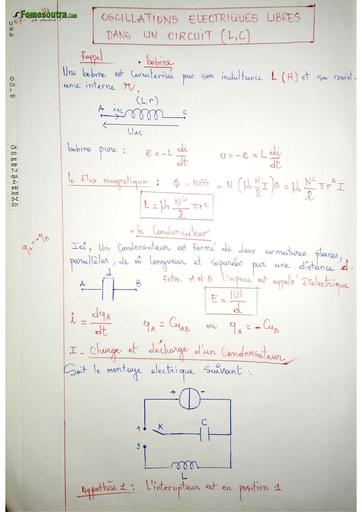 Fomesoutra.com
OSCILLATIONS ELECTRIQUES LIBRES
DANS UN CIRCUIT (L,C)
Rappel
• bobine
Une bobine est caractérisée par son inductance L (H) et sa résist-
ance interne r.
(L,r)
A iAC C
UAC
bobine pure : e = -L di/dt u = -e = L di/dt
le Flux magnétique : Φ = NBS = N (μ₀ N/l I) S = μ₀ N²/l πr² I
L = μ₀ N²/l πr²
• le Condensateur
Ici, Un Condensateur est formé de deux armatures planes,
parallèles, de m̂ longueur et séparées par une distance d.
d
A B
Entre A et B l'espace est appelé Dielectrique
E = |U|/d
qA = -qB
i = dqA/dt qA = CuAB ou qA = -CuB
I - Charge et décharge d'un Condensateur
Soit le montage electrique suivant :
+ -
1 K C
2
L
Hypothèse 1 : L'interupteur est en position 1